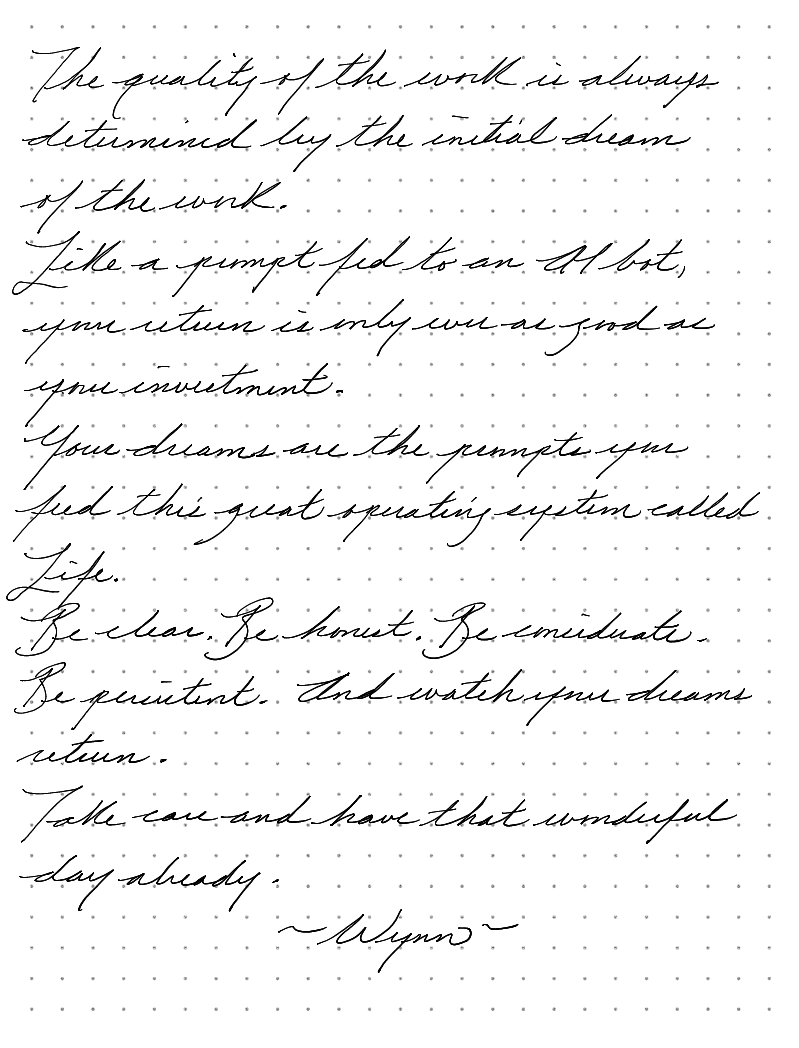 The quality of the work is always
determined by the initial dream
of the work.
Like a prompt fed to an AI bot,
your return is only ever as good as
your investment.
Your dreams are the prompts you
feed this great operating system called
Life.
Be clear. Be honest. Be considerate.
Be persistent. And watch your dreams
return.
Take care and have that wonderful
day already.
~Wynn~